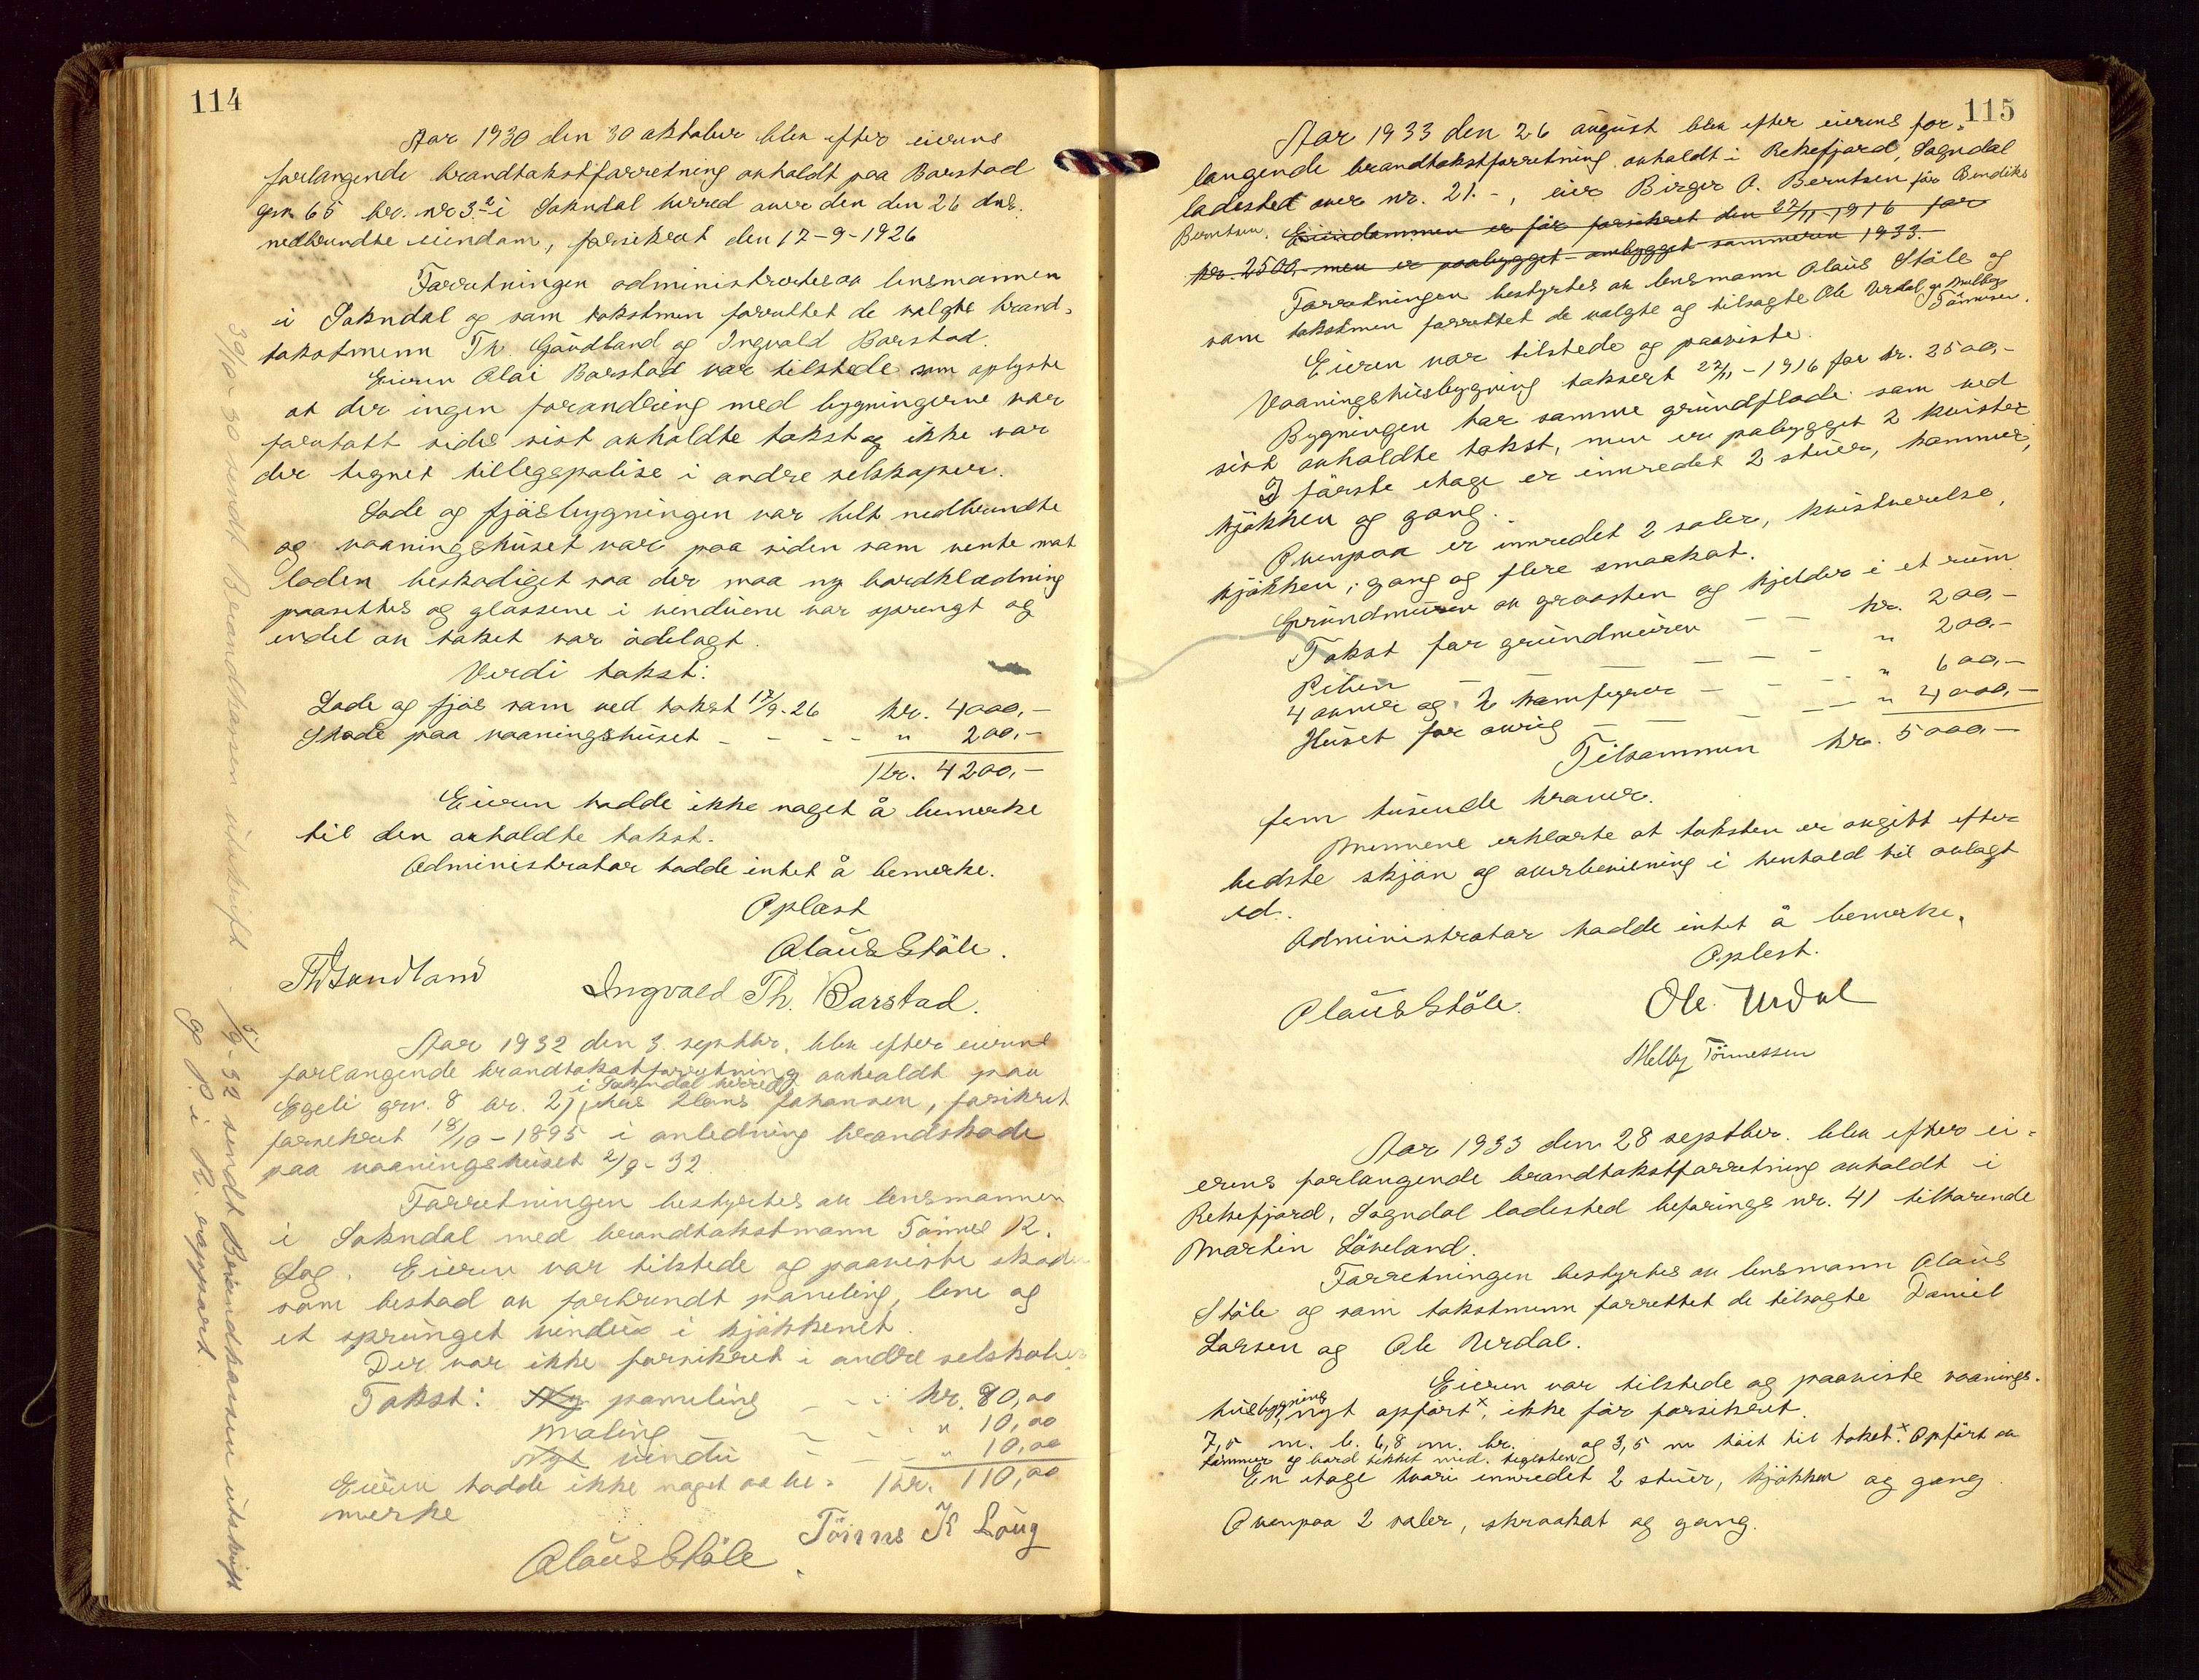 114
Aar 1930 den 30 oktober blev efter eierens
forlangende brandtakstforretning avholdt paa Barstad
gnr. 65 br. nr 3 i Sokndal herred over den den 26 dns.
nedbrundte eiendom, forsikret den 17-9-1926
Forretningen administrertes av lensmannen
i Sokndal og som takstmen forrettet de valgte brand-
takstmenn Th. Gaudland og Ingvald Barstad.
Eieren Olai Barstad var tilstede som oplyste
at der ingen forandring med bygningerne var
foretatt siden sist avholdte takst og ikke var
der tegnet tillegspolise i andre selskaper.
Lade og fjösbygningen var helt nedbrundte
og vaaningshuset var paa siden som vente mot
loden beskadiget saa der maa ny bordklædning
paasettes og glassene i vinduene var sprengt og
endel av taket var ödelagt.
Verdi takst:
Lade og fjös som ved takst 17/9-26 kr. 4000,-
Skade paa vaaningshuset - - - - " 200,-
Kr. 4200,-
Eieren hadde ikke noget å bemerke
til den avholdte takst.
Administrator hadde intet å bemerke.
Oplæst
Olaus Ståle.
Th Gaudland Ingvald Th. Barstad.
Aar 1932 den 3. septbr. blev efter eierens
forlangende brandtakstforretning avholdt paa
i Sokndal herred
Egeli gnr. 8 br. 2, hos Hans Johansen, forsikret
forsikret 18/10-1895 i anledning brandskade
paa vaaningshuset 2/9-32
Forretningen bestyrtes av lensmannen
i Sokndal med brandtakstmann Tönnes K.
Log. Eieren var tilstede og paaviste skade
som bestod av forbrundt paneling, lem og
et sprunget vindu i kjøkkenet.
Der var ikke forsikret i andre selskaber
Takst: Ny paneling - - - kr. 90,00
Maling - - - " 10,00
Nyt vindu - - - " 10,00
Eieren hadde ikke noget aa be- Kr. 110,00
merke
Tönnes K Loug
Olaus Ståle
39/10 30 sendt Brandkassen utskrift.
5/9-32 sendt Brandkassen utskrift
og P. i R. rapport.
115
Aar 1933 den 26 august blev efter eierens for-
langende brandtakstforretning avholdt i Rekefjord, Sogndal
ladested over nr. 21.-, eier Birger O. Berntsen för Bendiks
Berntsen. Eiendommen er för forsikret den 27/11-1916 for
kr. 2500,- men er paabygget ombygget sommeren 1933.
Forretningen bestyrtes av lensmann Olaus Ståle og
som takstmen forrettet de valgte og tilsagte Ole Urdal og Melby
Tönnesen.
Eieren var tilstede og paaviste.
Vaaningshusbygning taksert 27/11-1916 for kr. 2500,-
Bygningen har samme grundflade som ved
sist avholdte takst, men er pabygget 2 kvister
I förste etage er innredet 2 stuer, kammer,
kjökken og gang.
Ovenpaa er innredet 2 saler, kvistverelse,
kjökken, gang og flere smaakot.
Grundmuren av graasten og kjelder i et rum
Takst for grundmuren - - kr. 200,-
Piben - - - - " 200,-
4 ovner og 2 komfyrer - - - " 600,-
Huset for övrig - - - - " 4000,-
Tilsammen kr. 5000,-
fem tusende kroner.
Mennene erklærte at taksten er avgitt efter
bedste skjön og overbevisning i henhold til avlagt
ed.
Administrator hadde intet å bemerke.
Oplest.
Olaus Ståle. Ole Urdal
Melby Tönnessen
Aar 1933 den 28 septber. blev efter ei-
erens forlangende brandtakstforretning avholdt i
Rekefjord, Sogndal ladested befarings nr. 41 tilhörende
Martin Löveland.
Forretningen bestyrtes av lensmann Olaus
Ståle og som takstmenn forrettet de tilsagte Daniel
Larsen og Ole Urdal.
Eieren var tilstede og paaviste vaanings-
husbygning nyt opfört x, ikke för forsikret.
7,5 m. l. 6,8 m. br. og 3,5 m höit til taket. x Opfört av
tömmer og bord tekket med teglsten
En etage hvori innredet 2 stuer, kjökken og gang
Ovenpaa 2 saler, skraakot og gang.